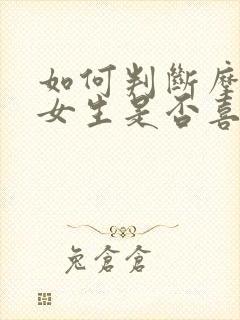 如何判斷
女生是否喜
兔倉倉